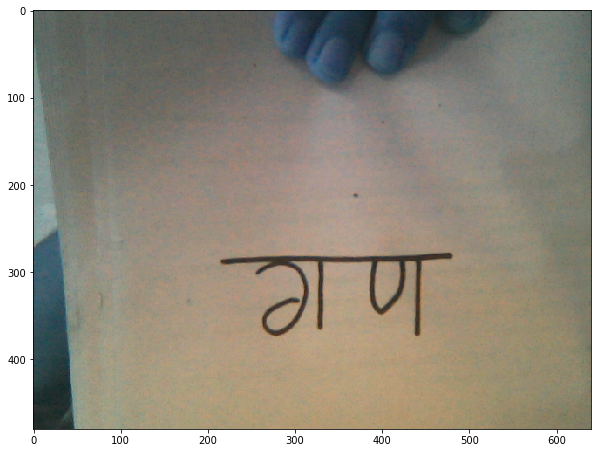 0
100
200
300
400
गण
0 100 200 300 400 500 600